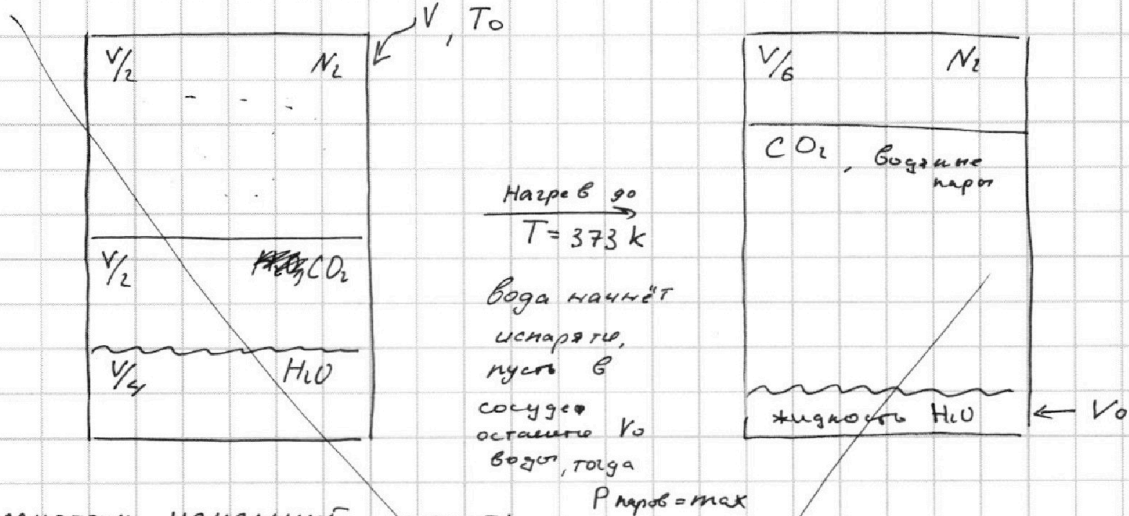 V, T₀
V/2 N₂
V/2 CO₂
V/4 H₂O
Нагрев до
T = 373 K
вода начнёт
испаряться,
пусть в
сосуде
останется V₀
воды, тогда
P паров = max
V/6 N₂
CO₂, водяные
пары
жидкость H₂O
V₀